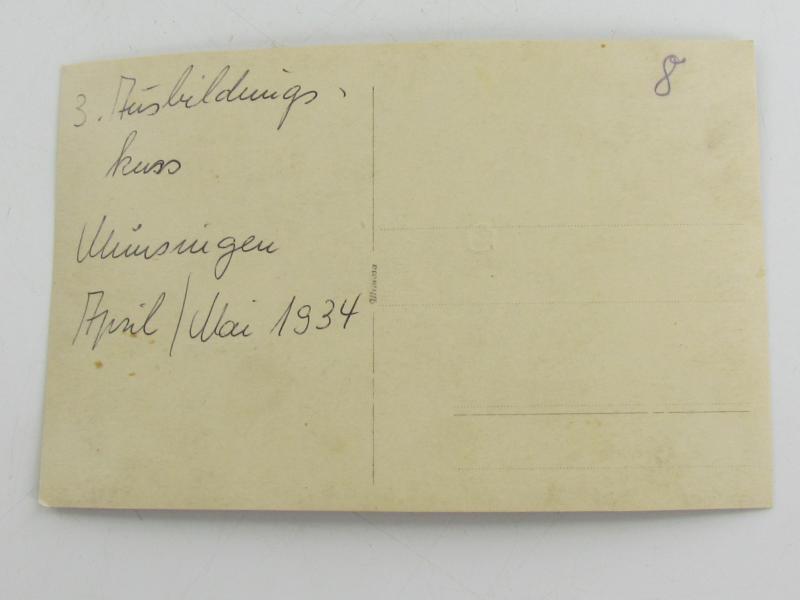 3. Ausbildungs-
kurs
Münsingen
April/Mai 1934
8
Mimosa